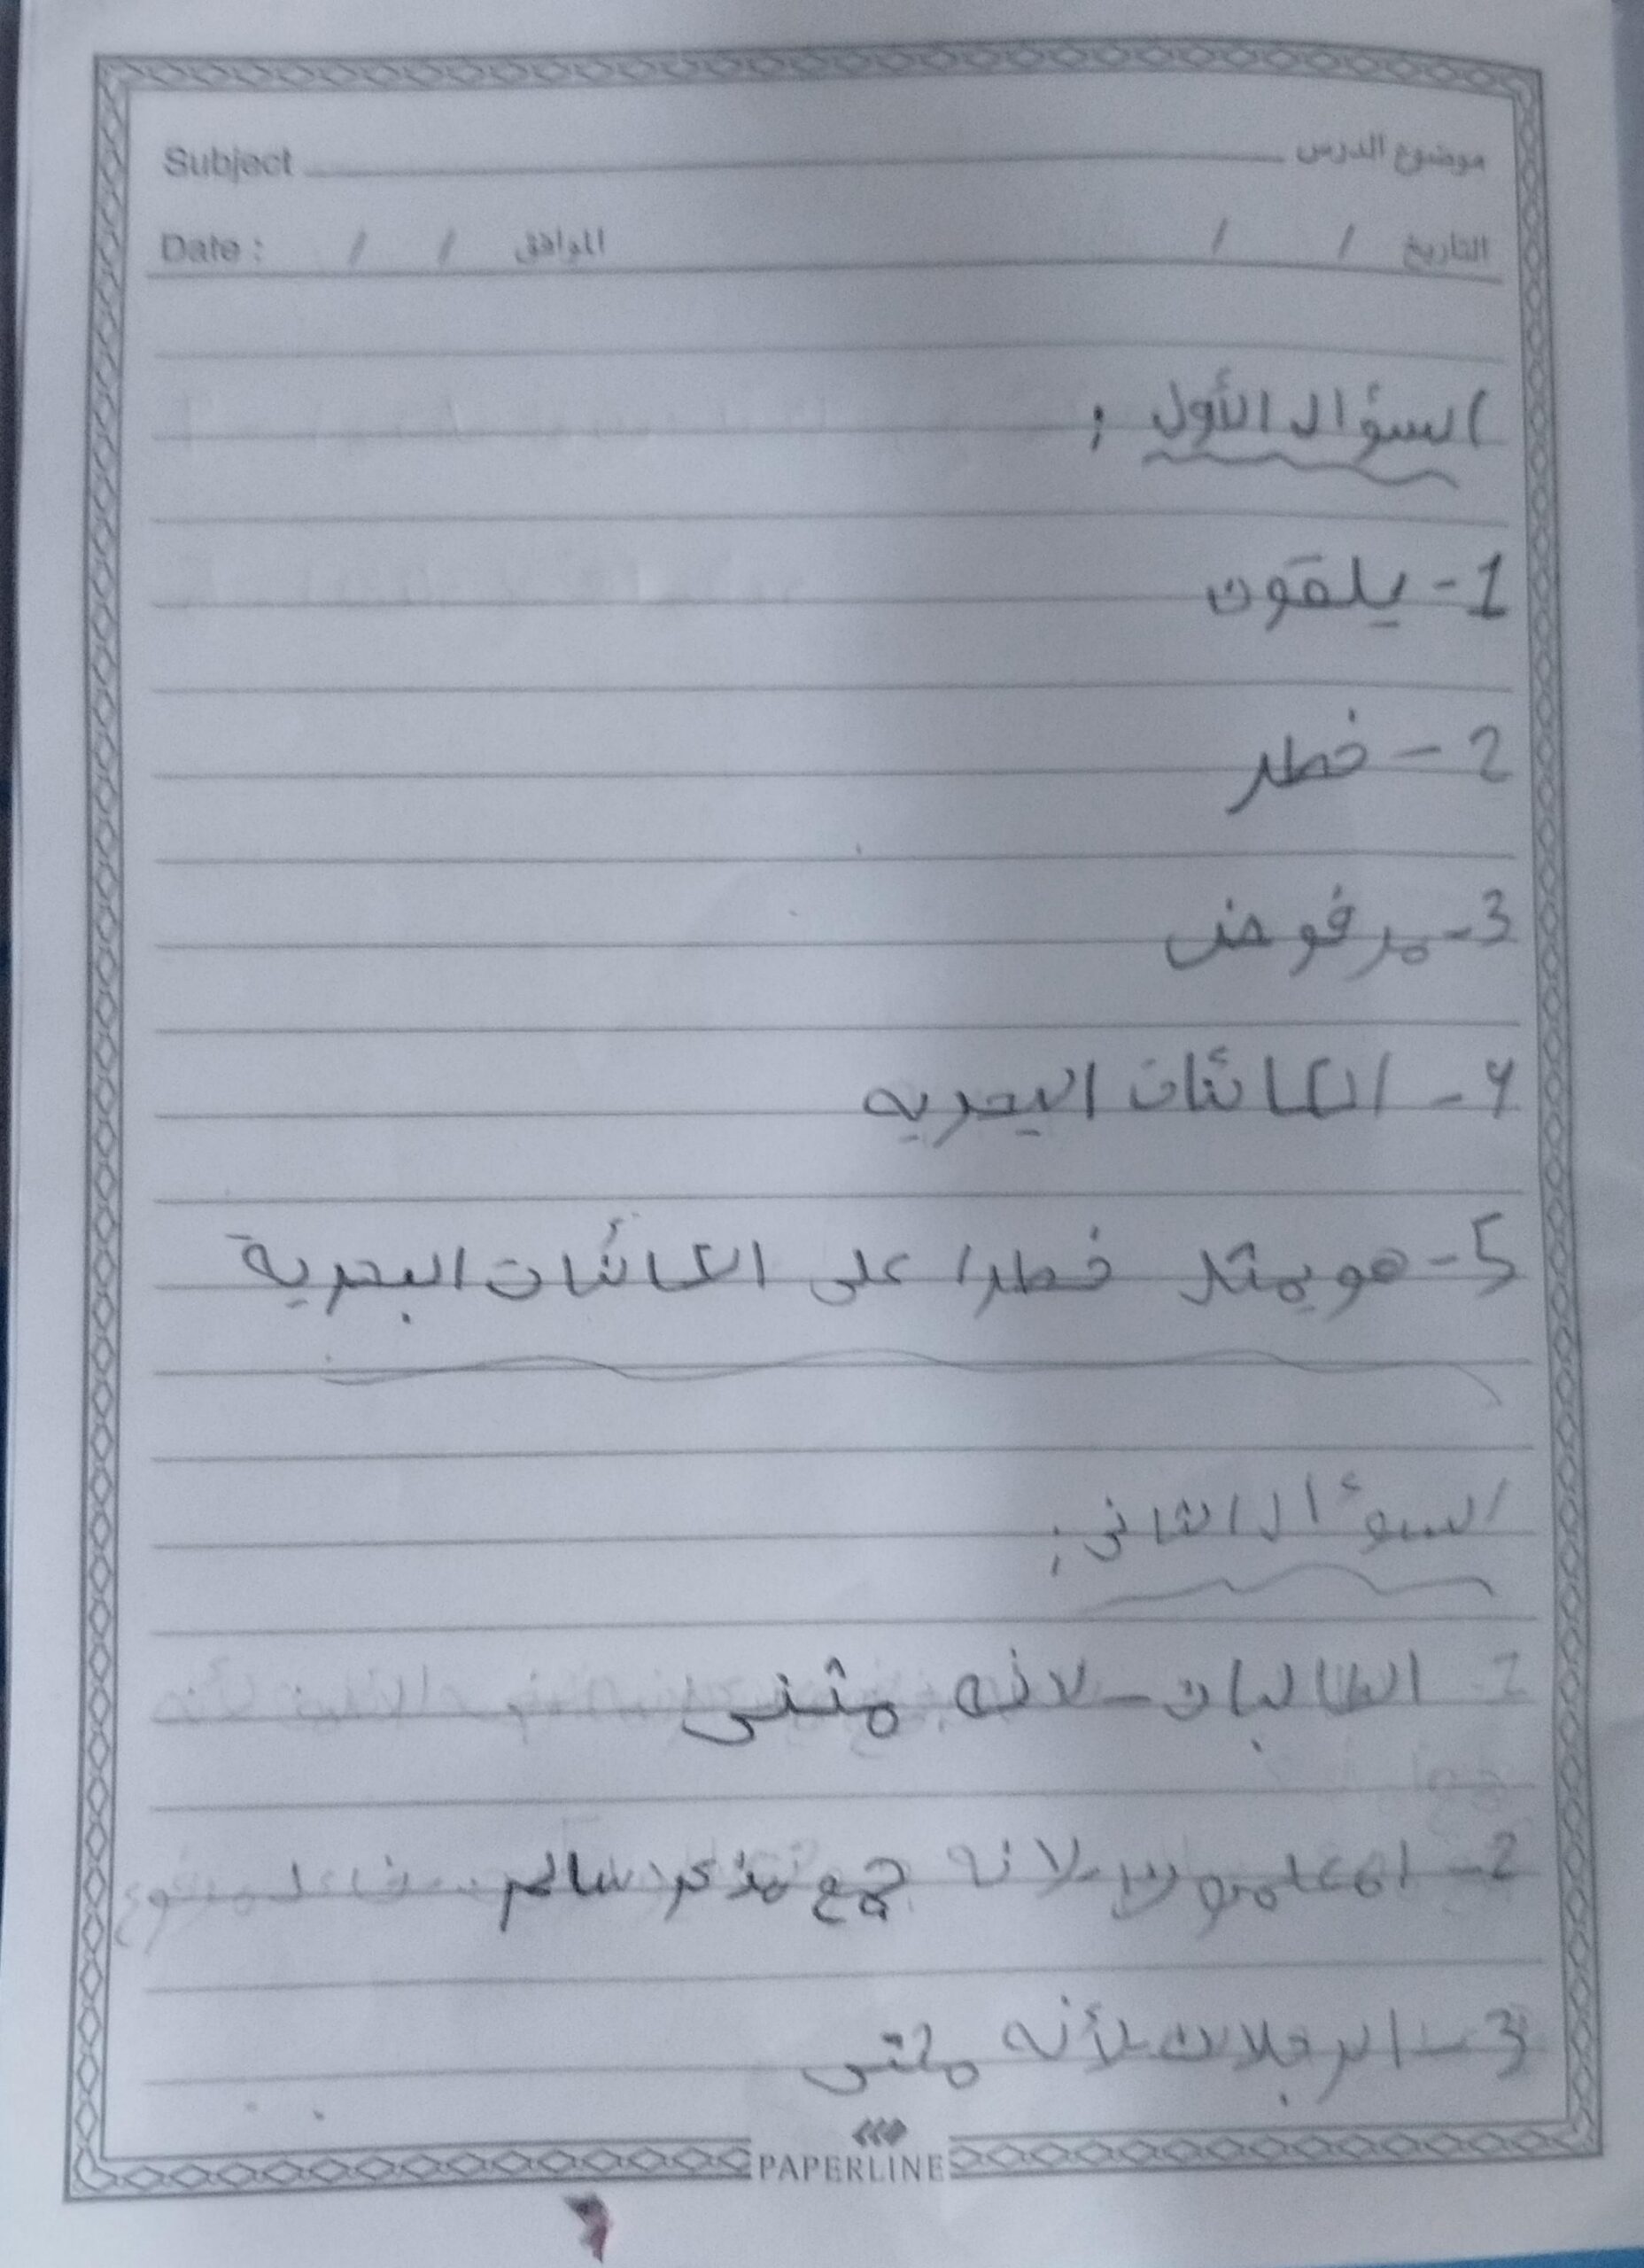 Subject موضوع الدرس
Date : / / الموافق / / التاريخ
السؤال الأول :
1- يلقون
2- خطر
3- مرفوض
4- الكائنات البحريه
5- هو يمثل خطرا على الكائنات البحرية
السؤال الثاني :
1 الطالبان - لانه مثنى
2- المعلمون - لانه جمع مذكر سالم
3- الرجلان لأنه مثنى
PAPERLINE